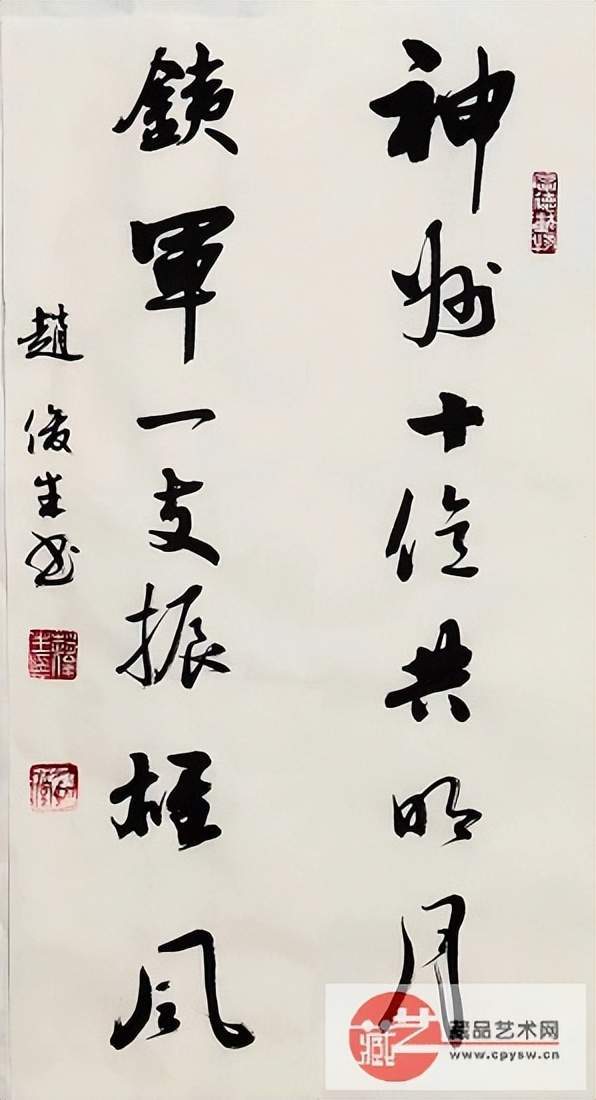 神州十億共明月
銕軍一支振雄風
趙俊生書
藏艺
藏品艺术网
www.cpysw.cn